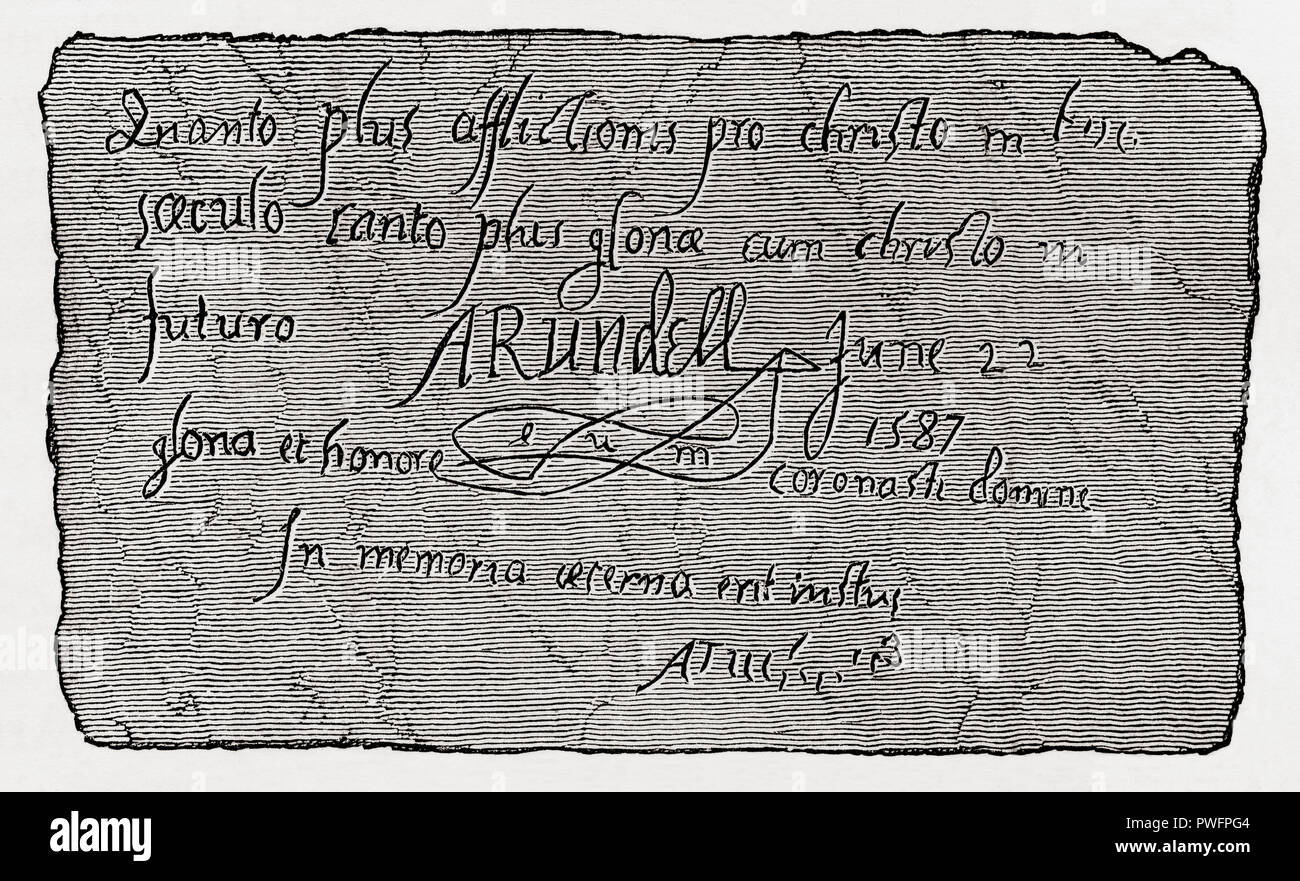 Quanto plus afflictionis pro christo in hoc
sæculo tanto plus gloriæ cum christo in
futuro ARundell June 22
1587
gloria et honore e u m coronasti domine
In memoria æterna erit iustus
alamy
Image ID: PWFPG4
www.alamy.com